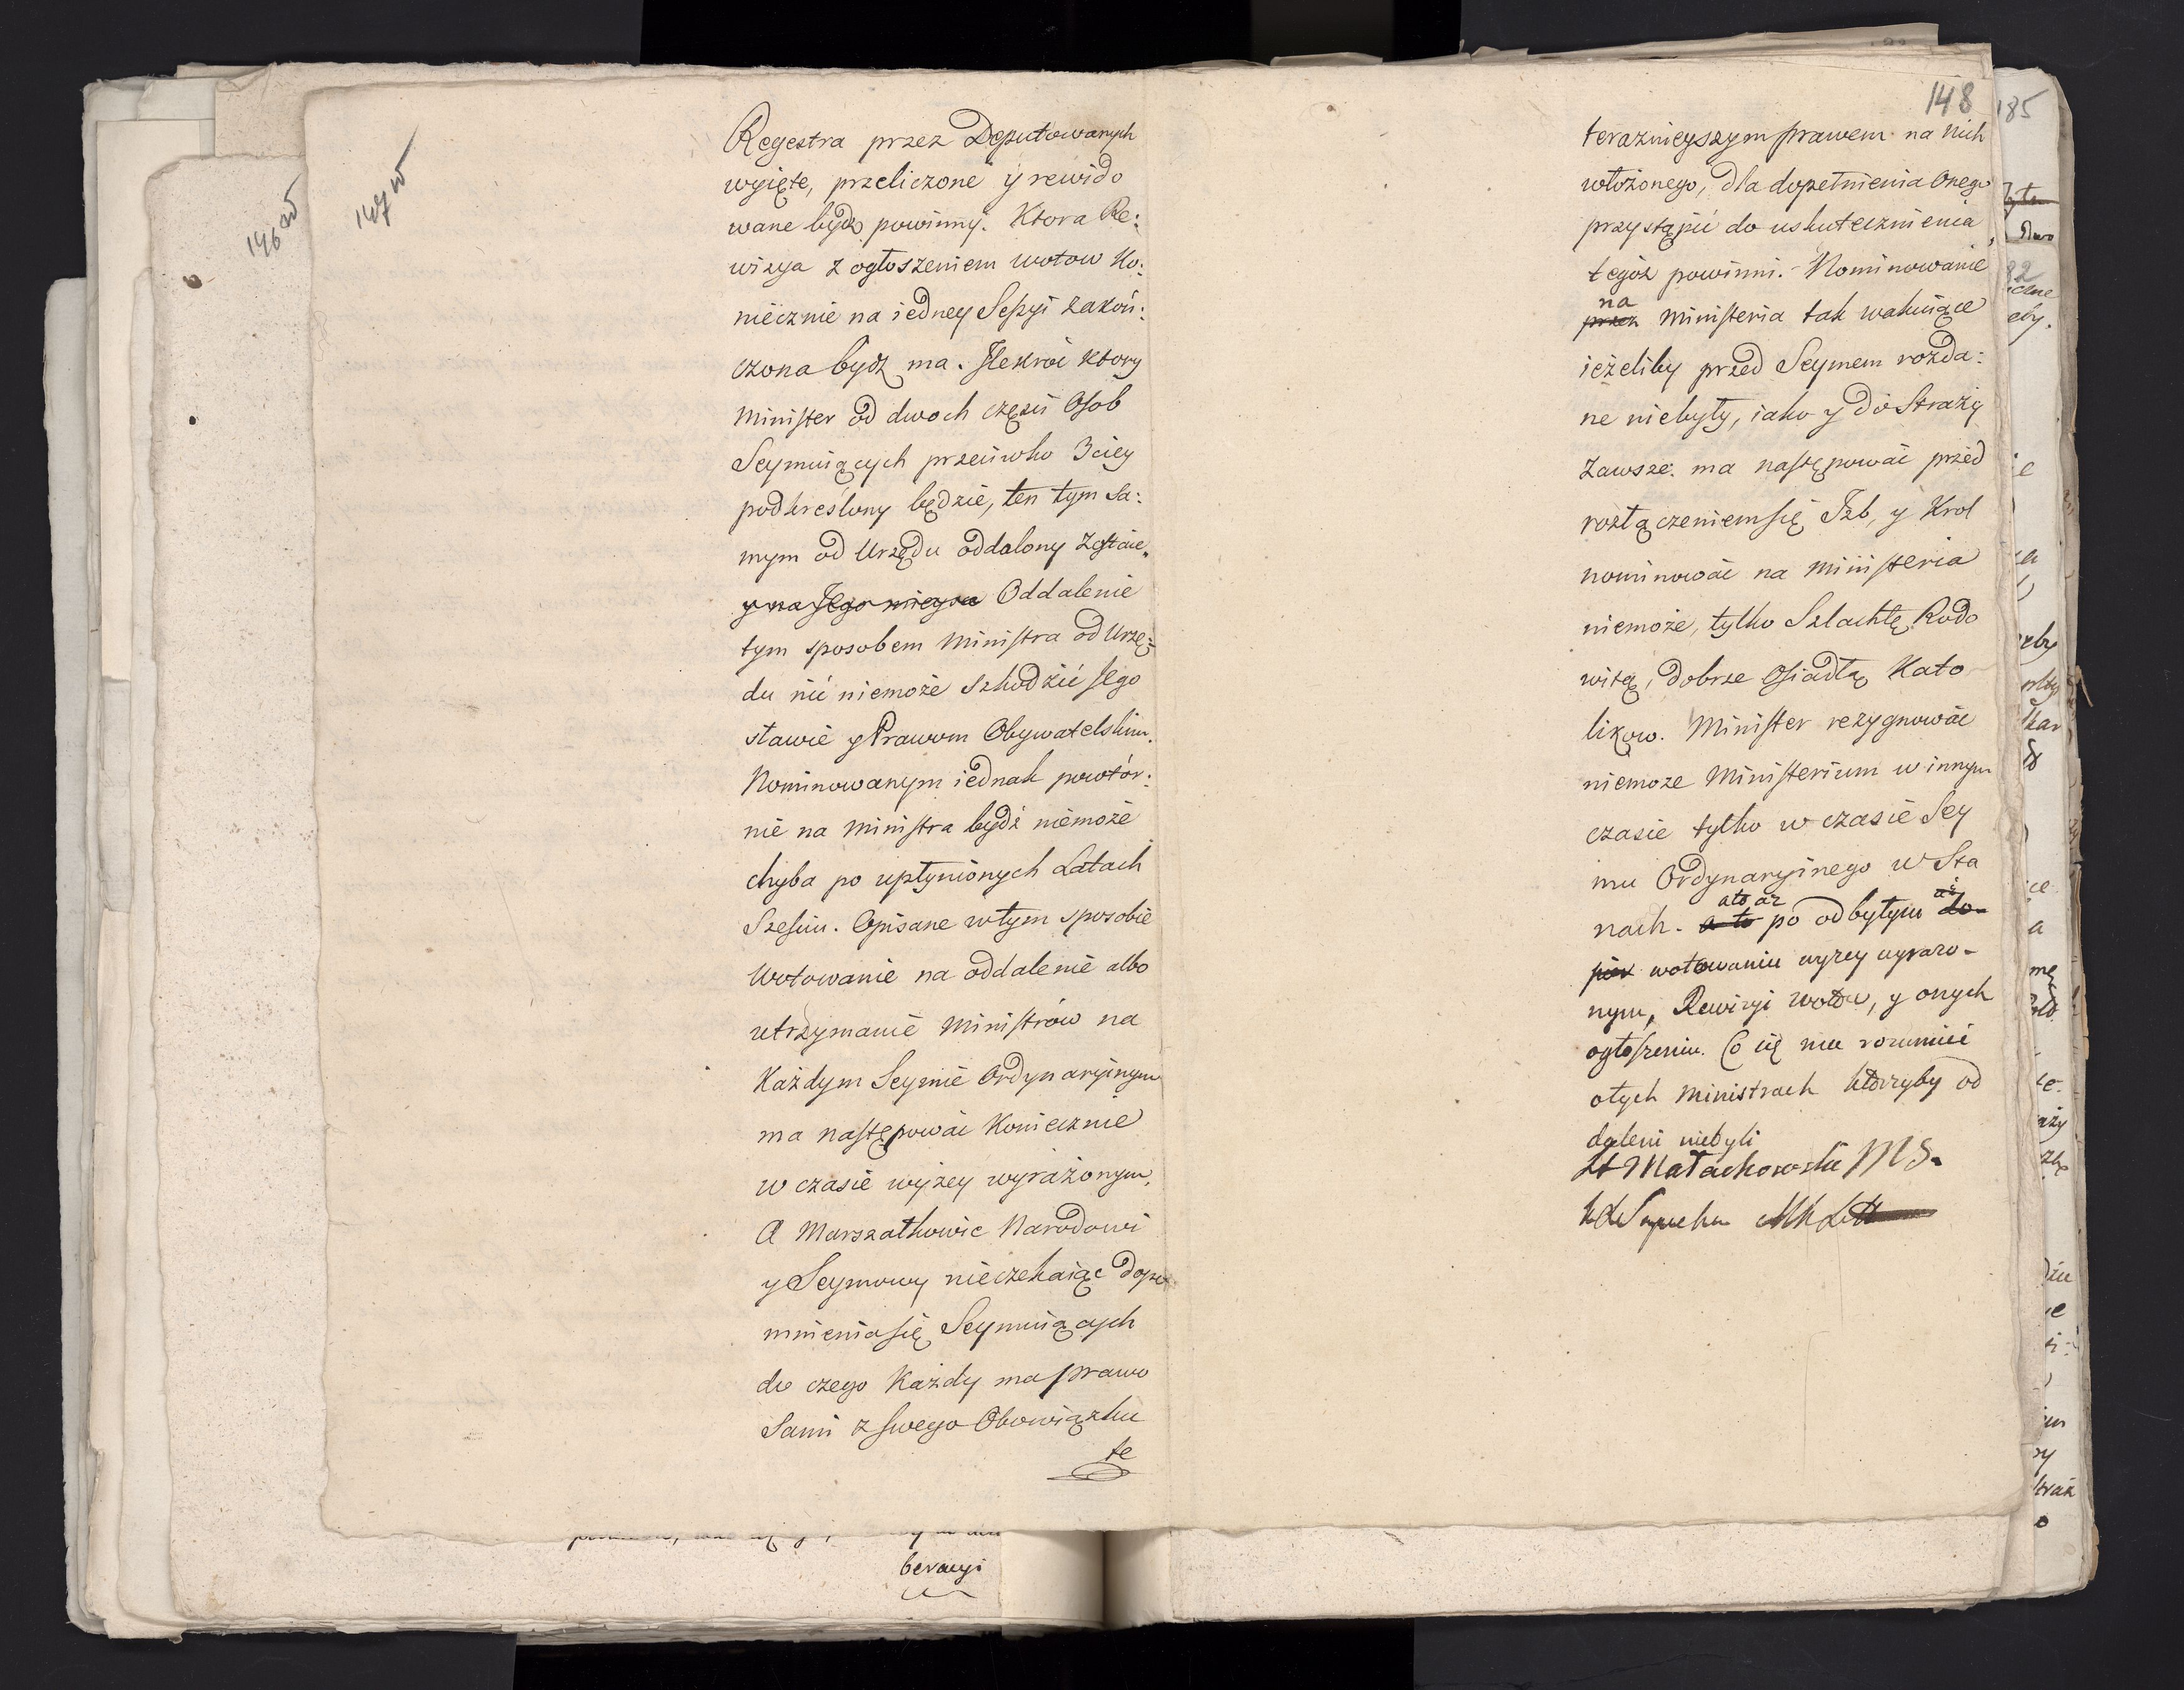 146 w
147 w
Regestra przez Deputowanych
wyięte, przeliczone y rewido
wane bydz powinny. Ktora Re:
wizya z ogłoszeniem wotow Ko:
niecznie na iedney Sessyi zakoń:
czona bydz ma. Ilekroć ktory
Minister od dwoch części Osob
Seymuiących przeciwko 3ciey
podkreślony będzie, ten tym sa:
mym od Urzędu oddalony zostaie.
y na Jego mieysce Oddalenie
tym sposobem Ministra od Urzę:
du nic niemoże szkodzić Jego
sławie y Prawom Obywatelskim.
Nominowanym iednak powtór:
nie na Ministra bydź niemoże
chyba po upłynionych Latach
Sześciu. Opisane w tym sposobie
Wotowanie na oddalenie albo
utrzymanie Ministrów na
Każdym Seymie Ordynaryinym
ma następować Koniecznie
w czasie wyżey wyrażonym,
A Marszałkowie Narodowi
y Seymowy nieczekaiąc dopo
mnienia się Seymuiących
do czego Każdy ma prawo
Sami z swego Obowiązku
te
beracyi
148
teraznieyszym prawem na nich
włożonego, dla dopełnienia Onego
przystąpić do uskutecznienia
tegoż powinni. Nominowanie
na
przez Ministeria tak wakuiące
ieżeliby przed Seymem rozda:
ne niebyły, iako y do Straży
Zawsze. ma następować przed
rozłączeniem się Izb, y Krol
nominować na Ministeria
niemoże, tylko Szlachtę Rodo
witą, dobrze Osiadłą Kato
likow. Minister rezygnować
niemoze Ministerium w innym
czasie tylko w czasie Sey
mu Ordynaryinego w Sta
ato aż aż
nach. a to po odbytym do-
pier wotowaniu wyzey wyrazo-
nym, Rewizyi wotow, y onych
ogłoszeniu. Co się ma rozumieć
otych Ministrach ktorzyby od
daleni niebyli
St Małachowski MS.
K N Sapieha MK Litt
185
82